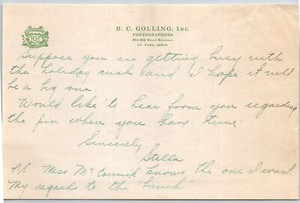 B. C. GOLLING, INC.
PHOTOGRAPHERS
ST. PAUL, MINN.
Suppose you are getting busy with
the holiday rush and I hope it will
be a big one.
Would like to hear from you regarding
the pin when you have time.
Sincerely,
Stella
P.S. Miss McCormick knows the one I want.
My regards to the "bunch"